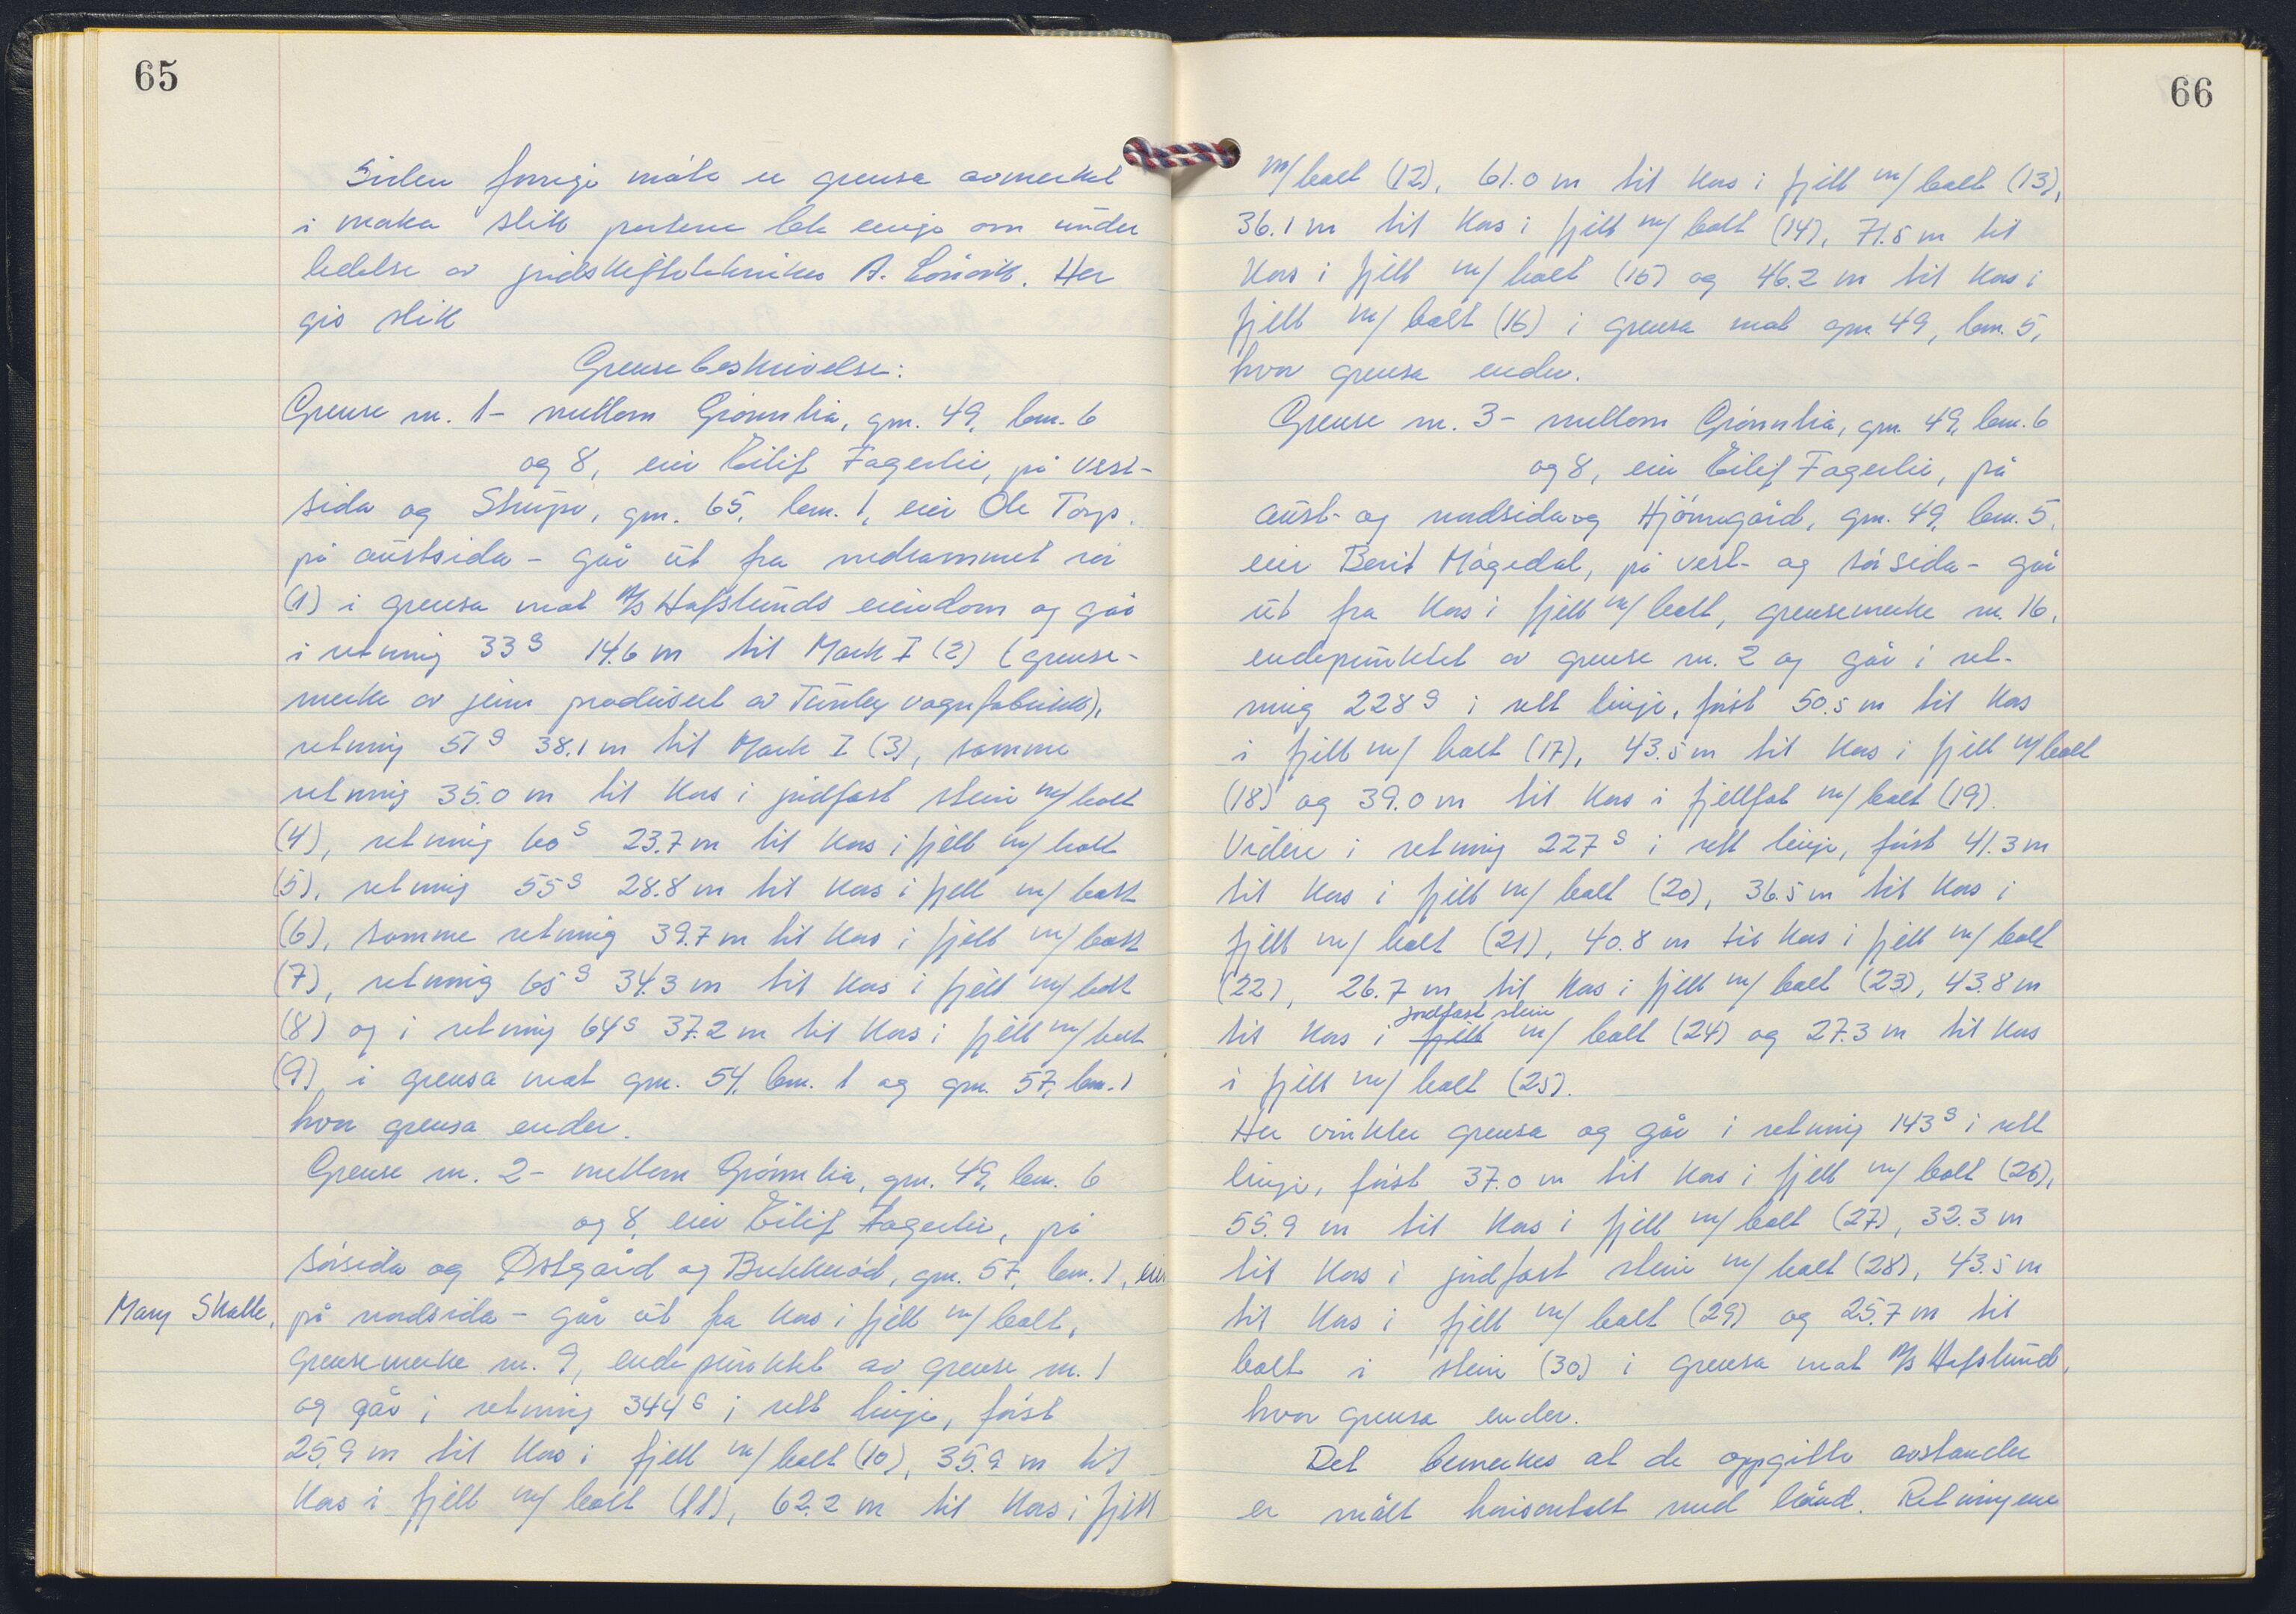 65
Siden forrige møte er grensa avmerket
i marka slik partene ble enige om under
ledelse av jordskiftetekniker A. Lønvik. Her
gis slik
Grensebeskrivelse:
Grense nr. 1 - mellom Grønnlia, gnr. 49, bnr. 6
og 8, eier Eilif Fagerlie, på vest-
sida og Strupe, gnr. 65, bnr. 1, eier Ole Torp,
på austsida - går ut fra nedrammet rør
(1) i grensa mot A/S Hafslunds eiendom og går
i retning 33g 14.6 m til Mork I (2) (grense-
merke av jern produsert av Tunby vognfabrikk),
retning 51g 38.1 m til Mork I (3), samme
retning 35.0 m til kors i jordfast stein m/bolt
(4), retning 60g 23.7 m til kors i fjell m/bolt
(5), retning 55g 28.8 m til kors i fjell m/bolt
(6), samme retning 39.7 m til kors i fjell m/bolt
(7), retning 65g 34.3 m til kors i fjell m/bolt
(8) og i retning 64g 37.2 m til kors i fjell m/bolt
(9) i grensa mot gnr. 54, bnr. 1 og gnr. 57, bnr. 1
hvor grensa ender.
Grense nr. 2 - mellom Grønnlia, gnr. 49, bnr. 6
og 8, eier Eilif Fagerlie, på
sørsida og Østgård og Bukkerød, gnr. 57, bnr. 1, eier
Mary Skalle, på nordsida - går ut fra kors i fjell m/bolt,
grensemerke nr. 9, endepunktet av grense nr. 1
og går i retning 344g i rett linje, først
25.9 m til kors i fjell m/bolt (10), 35.9 m til
kors i fjell m/bolt (11), 62.2 m til kors i fjell
66
m/bolt (12), 61.0 m til kors i fjell m/bolt (13),
36.1 m til kors i fjell m/bolt (14), 71.5 m til
kors i fjell m/bolt (15) og 46.2 m til kors i
fjell m/bolt (16) i grensa mot gnr. 49, bnr. 5,
hvor grensa ender.
Grense nr. 3 - mellom Grønnlia, gnr. 49, bnr. 6
og 8, eier Eilif Fagerlie, på
aust- og nordsida og Hjørnegård, gnr. 49, bnr. 5,
eier Berit Mågedal, på vest- og sørsida - går
ut fra kors i fjell m/bolt, grensemerke nr. 16,
endepunktet av grense nr. 2 og går i ret-
ning 228g i rett linje, først 50.5 m til kors
i fjell m/bolt (17), 43.5 m til kors i fjell m/bolt
(18) og 39.0 m til kors i fjellfot m/bolt (19).
Videre i retning 227g i rett linje, først 41.3 m
til kors i fjell m/bolt (20), 36.5 m til kors i
fjell m/bolt (21), 40.8 m til kors i fjell m/bolt
(22), 26.7 m til kors i fjell m/bolt (23), 43.8 m
jordfast stein
til kors i fjell m/bolt (24) og 27.3 m til kors
i fjell m/bolt (25).
Her vinkler grensa og går i retning 143g i rett
linje, først 37.0 m til kors i fjell m/bolt (26),
55.9 m til kors i fjell m/bolt (27), 32.3 m
til kors i jordfast stein m/bolt (28), 43.5 m
til kors i fjell m/bolt (29) og 25.7 m til
bolt i stein (30) i grensa mot A/S Hafslund,
hvor grensa ender.
Det bemerkes at de oppgitte avstander
er målt horisontalt med bånd. Retningene